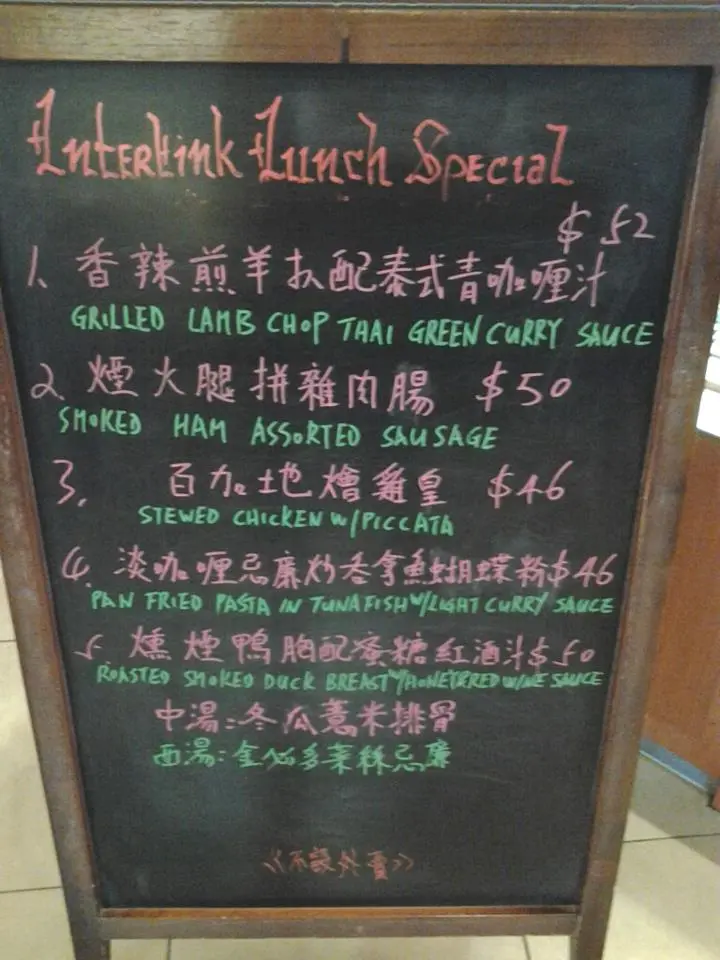 Interlink Lunch Special
$52
1. 香辣煎羊扒配泰式青咖喱汁
GRILLED LAMB CHOP THAI GREEN CURRY SAUCE
2. 煙火腿拼雜肉腸 $50
SMOKED HAM ASSORTED SAUSAGE
3. 百加地燴雞皇 $46
STEWED CHICKEN W/PICCATA
4. 淡咖喱忌廉炒吞拿魚蝴蝶粉$46
PAN FRIED PASTA IN TUNAFISH W/LIGHT CURRY SAUCE
5. 燻煙鴨胸配蜜糖紅酒汁$50
ROASTED SMOKED DUCK BREAST W/HONEY RED WINE SAUCE
中湯:冬瓜薏米排骨
西湯:金必多菜絲忌廉
《不設外賣》